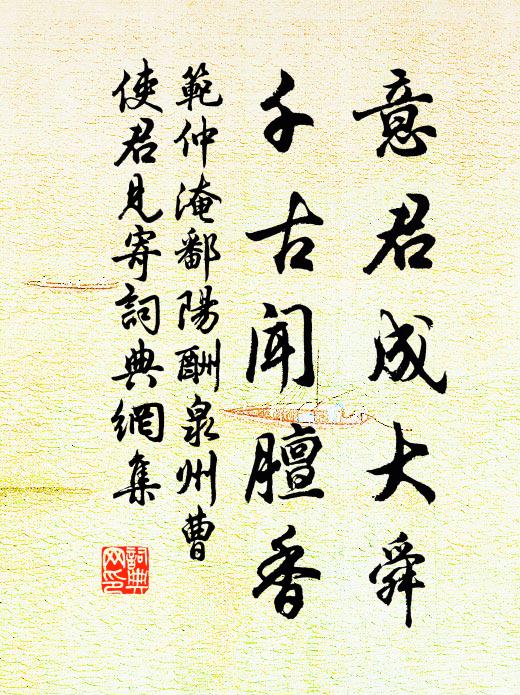 意君成大舜
千古聞膻香
範仲淹鄱陽酬泉州曹
使君見寄詞典網集
詞典
网印